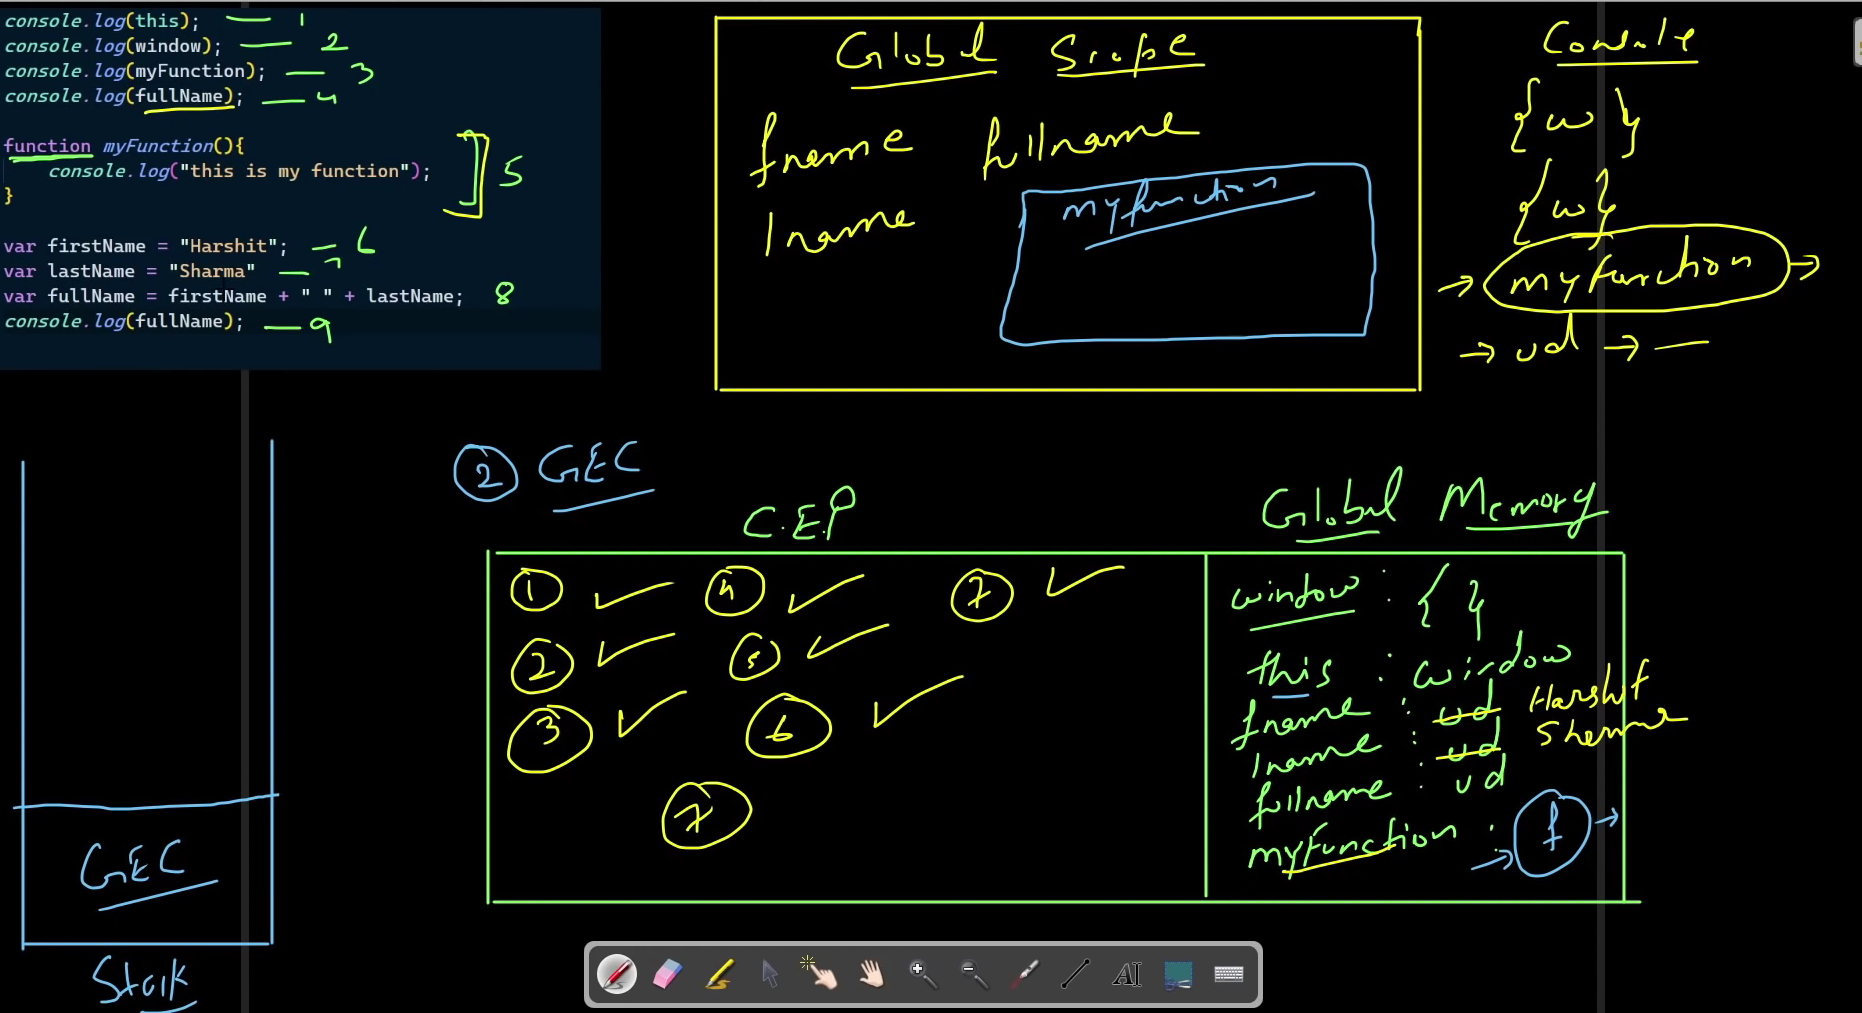 console.log(this); 1
console.log(window); 2
console.log(myFunction); 3
console.log(fullName); 4
function myFunction(){
console.log("this is my function");
} 5
var firstName = "Harshit"; 6
var lastName = "Sharma" 7
var fullName = firstName + " " + lastName; 8
console.log(fullName); 9
Global Scope
fname fullname
lname
myfunction
Console
{w}
{w}
→ myfunction →
→ ud → —
2 GEC
C.E.P
1 4 7
2 5
3 6
7
Global Memory
window : { }
this : window
fname : ud Harshit
lname : ud Sharma
fullname : ud
myFunction : → f →
GEC
Stack
AI